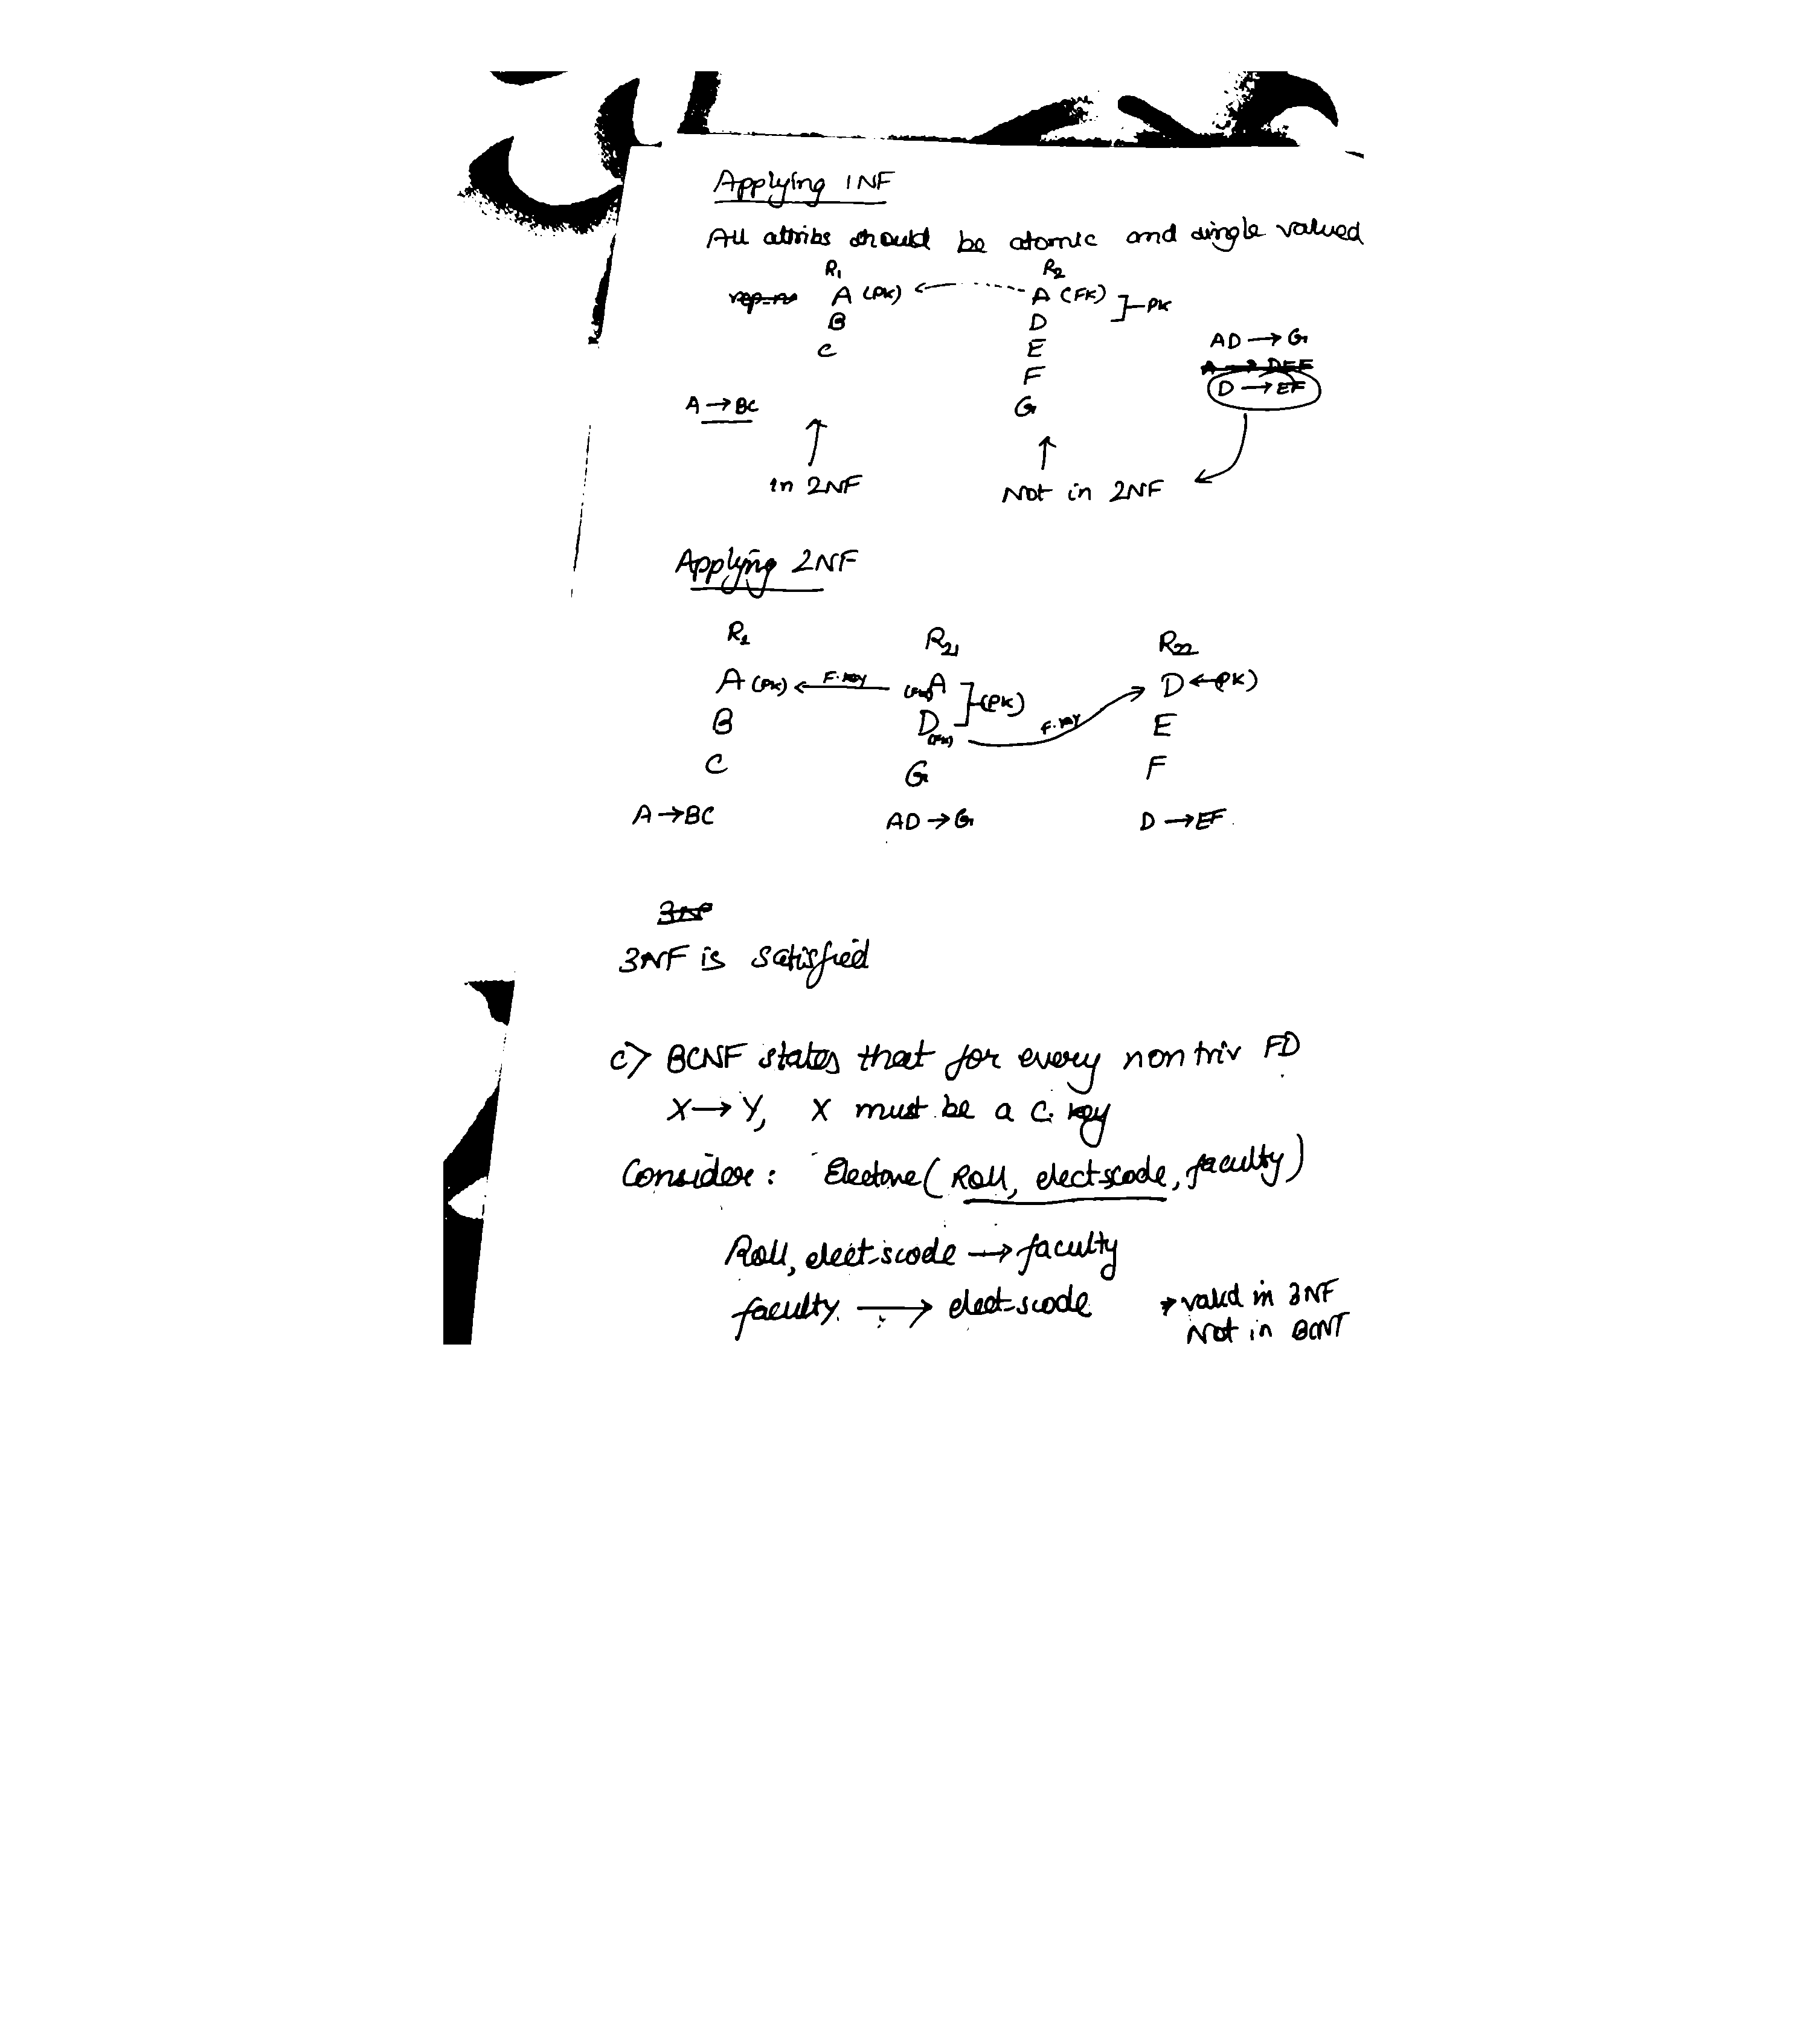 Applying 1NF
All attribs should be atomic and single valued
R1 R2
A (PK) A (FK) PK
B D
C E
F
G
AD → G
A → DEF
D → EF
A → BC
in 2NF Not in 2NF
Applying 2NF
R1 R21 R22
A (PK) F. key (FK) A (PK) D (PK)
B D (FK) F. key E
C G F
A → BC AD → G D → EF
3NF
3NF is satisfied
c) BCNF states that for every non triv FD
X → Y, X must be a C. key
Consider: Elective (Roll, elect-scode, faculty)
Roll, elect-scode → faculty
faculty → elect-scode → valid in 3NF
Not in BCNF